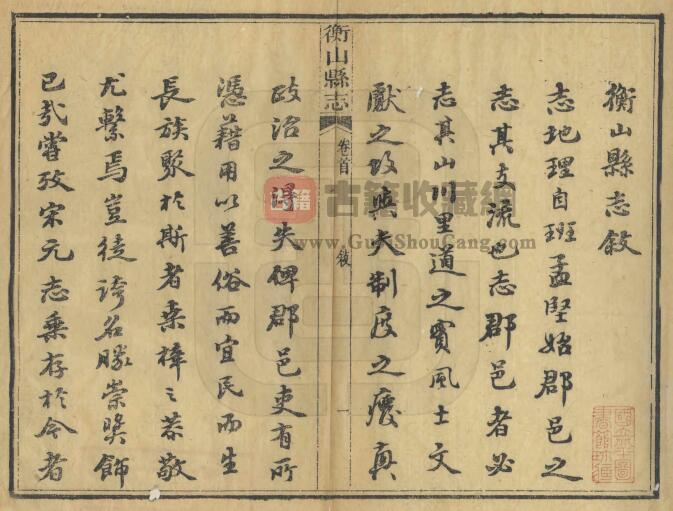 衡山縣志敘
志地理自班孟堅始郡邑之
志其支流也志郡邑者必
志其山川里道之實風土文
獻之攷與夫制度之廢興
政治之得失俾郡邑吏有所
憑藉用以善俗而宜民而生
長族聚於斯者桑梓之恭敬
尤繫焉豈徒誇名勝崇奬飾
已哉嘗攷宋元志乘存於今者
衡山縣志
卷首
敘
一
古籍收藏網
www.GuJiShouCang.com
古籍